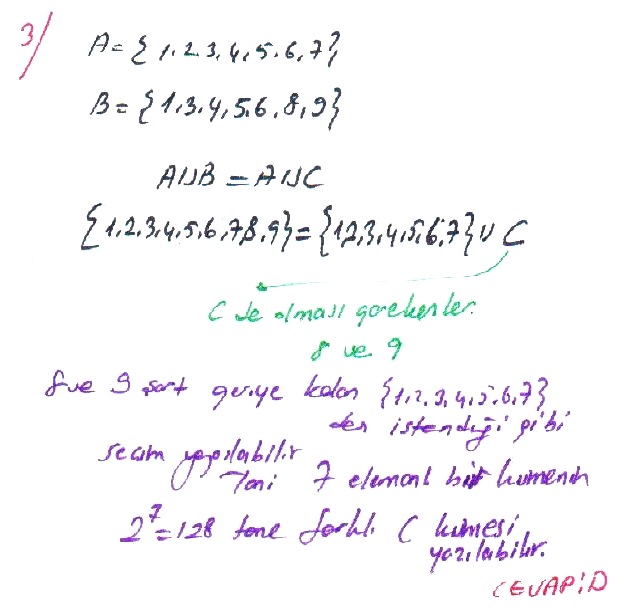 3/ A = {1,2,3,4,5,6,7}
B = {1,3,4,5,6,8,9}
A∪B = A∪C
{1,2,3,4,5,6,7,8,9} = {1,2,3,4,5,6,7} ∪ C
C de olması gerekenler.
8 ve 9
8 ve 9 şart geriye kalan {1,2,3,4,5,6,7}
den istendiği gibi
seçim yapılabilir
Yani 7 elemanlı bir kümenin
2^7 = 128 tane farklı C kümesi
yazılabilir.
CEVAP: D